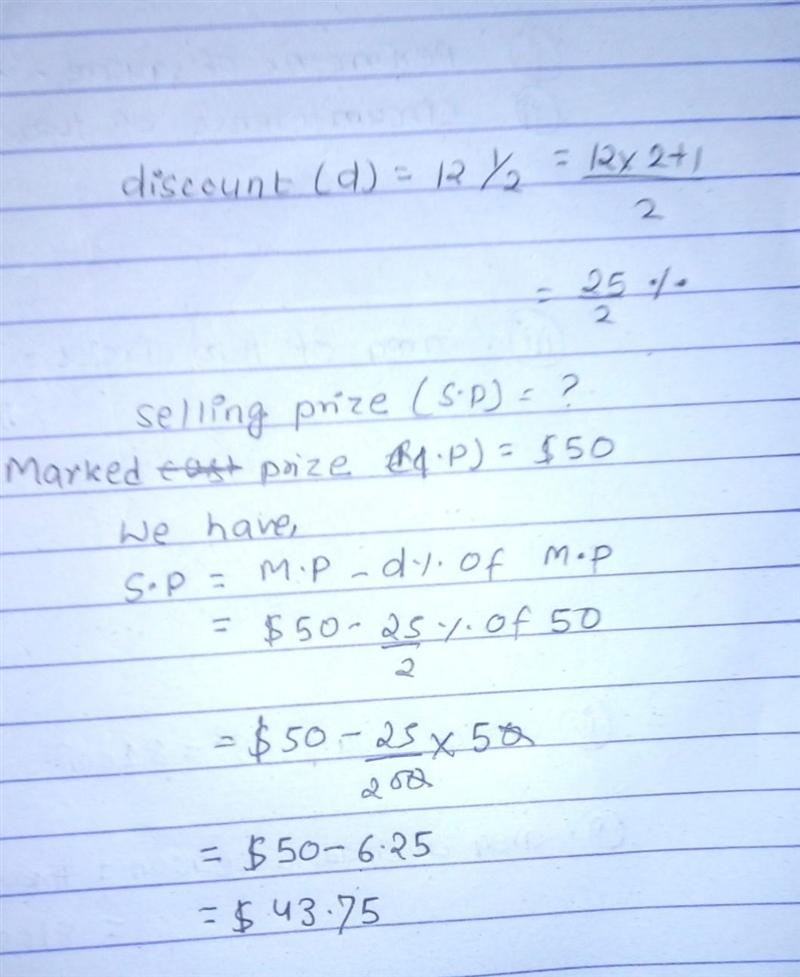 discount (d) = 12 1/2 = 12 x 2+1 / 2
= 25/2 %
Selling prize (S.P) = ?
Marked cost prize (M.P) = $50
We have,
S.P = M.P - d% of M.P
= $50 - 25/2 % of 50
= $50 - 25/200 x 50
= $50 - 6.25
= $43.75